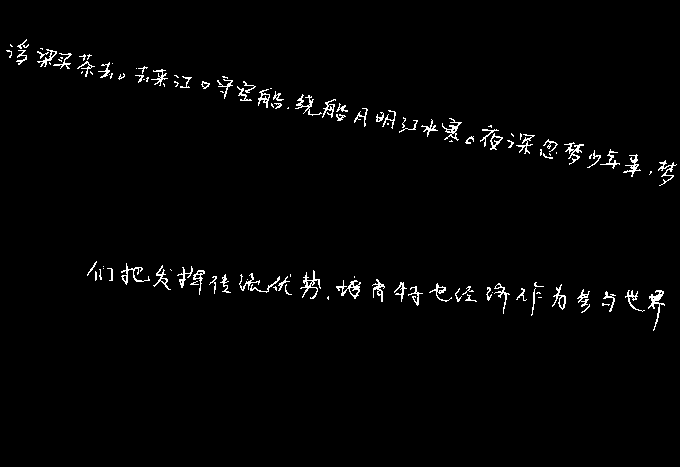 浮梁买茶去。去来江口守空船,绕船月明江水寒。夜深忽梦少年事,梦
们把发挥传统优势,培育特色经济作为参与世界